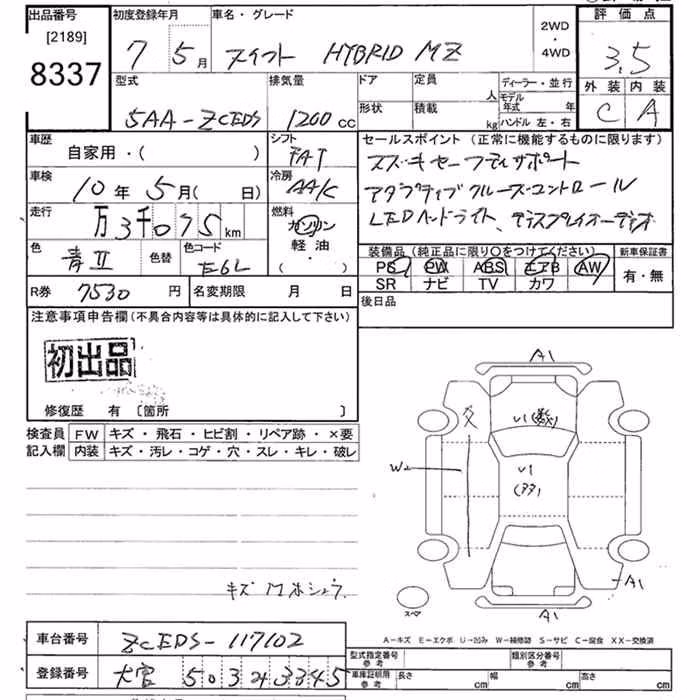 出品番号
[2189]
8337
初度登録年月
7 5月
車名・グレード
スイフト HYBRID MZ
2WD
・
4WD
評価点
3.5
外装 内装
C A
型式
5AA-ZCEDS
排気量
1200 cc
ドア
形状
定員
人
積載
kg
ディーラー・並行
モデル
年式 年
ハンドル 左・右
車歴
自家用・( )
シフト
FAT
車検
10年 5月( 日)
冷房
AA/C
走行
万3千075km
燃料
ガソリン
軽油
( ・ )
色
青II
色替
色コード
E6L
R券 7530円
名変期限 月 日
セールスポイント (正常に機能するものに限ります)
スズキセーフティサポート
アダプティブクルーズコントロール
LEDヘッドライト、ディスプレイオーディオ
装備品 (純正品に限り○をつけてください)
新車保証書
PS PW ABS エアB AW
有・無
SR ナビ TV カワ
後日品
注意事項申告欄 (不具合内容等は具体的に記入して下さい)
初出品
修復歴 有 〔箇所 〕
検査員
記入欄
FW キズ・飛石・ヒビ割・リペア跡・×要
内装 キズ・汚レ・コゲ・穴・スレ・キレ・破レ
A1
U1(数)
W2
U1
A1
A1
スペア
A-キズ E-エクボ U-凹み W-補修跡 S-サビ C-腐食 XX-交換済
車台番号 ZCEDS-117102
登録番号
503
3345
型式指定番号
参考
類別区分番号
参考
車庫証明用
参考
長さ cm 幅 cm 高さ cm